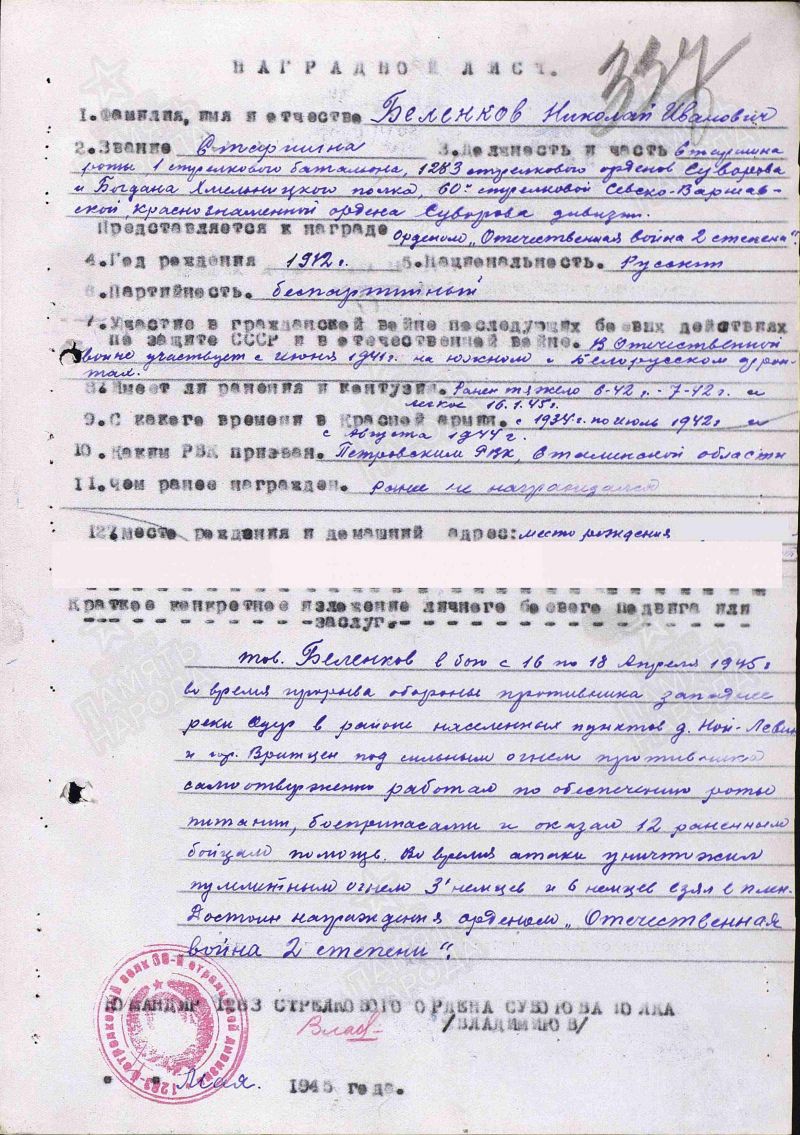 337
НАГРАДНОЙ ЛИСТ.
1. Фамилия, имя и отчество Беленков Николай Иванович
2. Звание Старшина 3. Должность и часть Старшина
роты 1 стрелкового батальона, 1283 стрелкового орденов Суворова
и Богдана Хмельницкого полка, 60й стрелковой Севско-Варшав-
ской, Краснознаменной ордена Суворова дивизии.
Представляется к награде орденом „Отечественная война 2 степени".
4. Год рождения 1912 г. 5. Национальность. Русский
6. Партийность. беспартийный
7. Участие в гражданской войне последующих боевых действиях
по защите СССР и в отечественной войне. В Отечественной
войне участвует с июня 1941 г. на южном и Белорусском фрон-
тах.
8. Имеет ли ранения и контузии. Ранен тяжело 6-42 г. - 7-42 г. и
легкое 16.1.45 г.
9. С какого времени в Красной армии. с 1934 г. по июль 1942 г и
с Августа 1944 г.
10. Каким РВК призван. Петровским РВК, Сталинской области
11. Чем ранее награжден. ранее не награждался
12. Место рождения и домашний адрес: место рождения
Краткое конкретное изложение личного боевого подвига или
заслуг.
тов. Беленков в бою с 16 по 18 Апреля 1945 г
во время прорыва обороны противника западнее
реки Одер в районе населенных пунктов д. Ной-Левин
и гор. Вритцен под сильным огнем противника
самоотвержено работал по обеспечению роты
питании, боеприпасами и оказал 12 раненным
бойцам помощь. Во время атаки уничтожил
пулиметным огнем 3 немцев и 6 немцев взял в плен.
Достоин награждения орденом „Отечественная
война 2 степени".
КОМАНДИР 1283 СТРЕЛКОВОГО ОРДЕНА СУВОРОВА ПОЛКА
/ВЛАДИМИРОВ/
" " Мая. 1945 года.